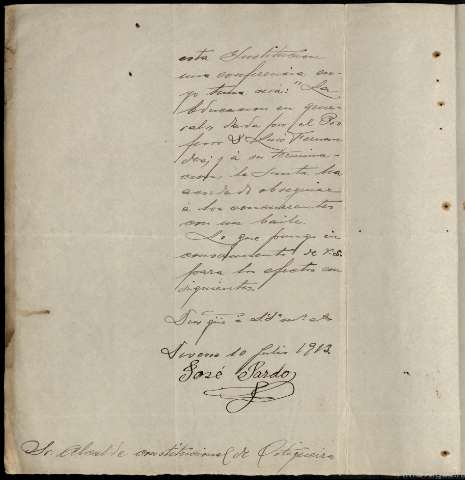 esta Institucion
una conferencia cu-
yo tema será: "La
Educacion en gene-
ral, dada por el Pro-
fesor D. Luis Fernan
dez, y á su termina-
cion, la Junta ha
acordado obsequiar
á los concurrentes
con un baile.
Lo que pongo en
conocimiento de V.S.
para los efectos con
siguientes.
Dios gũe á Vd. m.s a.s
10 Julio 1912
José Pardo
Sr. Alcalde constitucional de Ortigueira